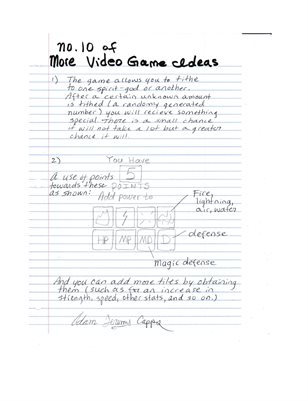 No. 10 of
More Video Game Ideas
1) The game allows you to tithe
to one spirit-god or another.
After a certain unknown amount
is tithed (a randomy generated
number) you will recieve something
special. There is a small chance
it will not take a lot but a greater
chance it will.
2) You Have
A use of points 5
towards these POINTS
as shown: Add power to
Fire,
lightning,
air, water
HP MP MD D
defense
Magic defense
And you can add more tiles by obtaining
them (such as for an increase in
strength, speed, other stats, and so on.)
Adam Jeremy Capps